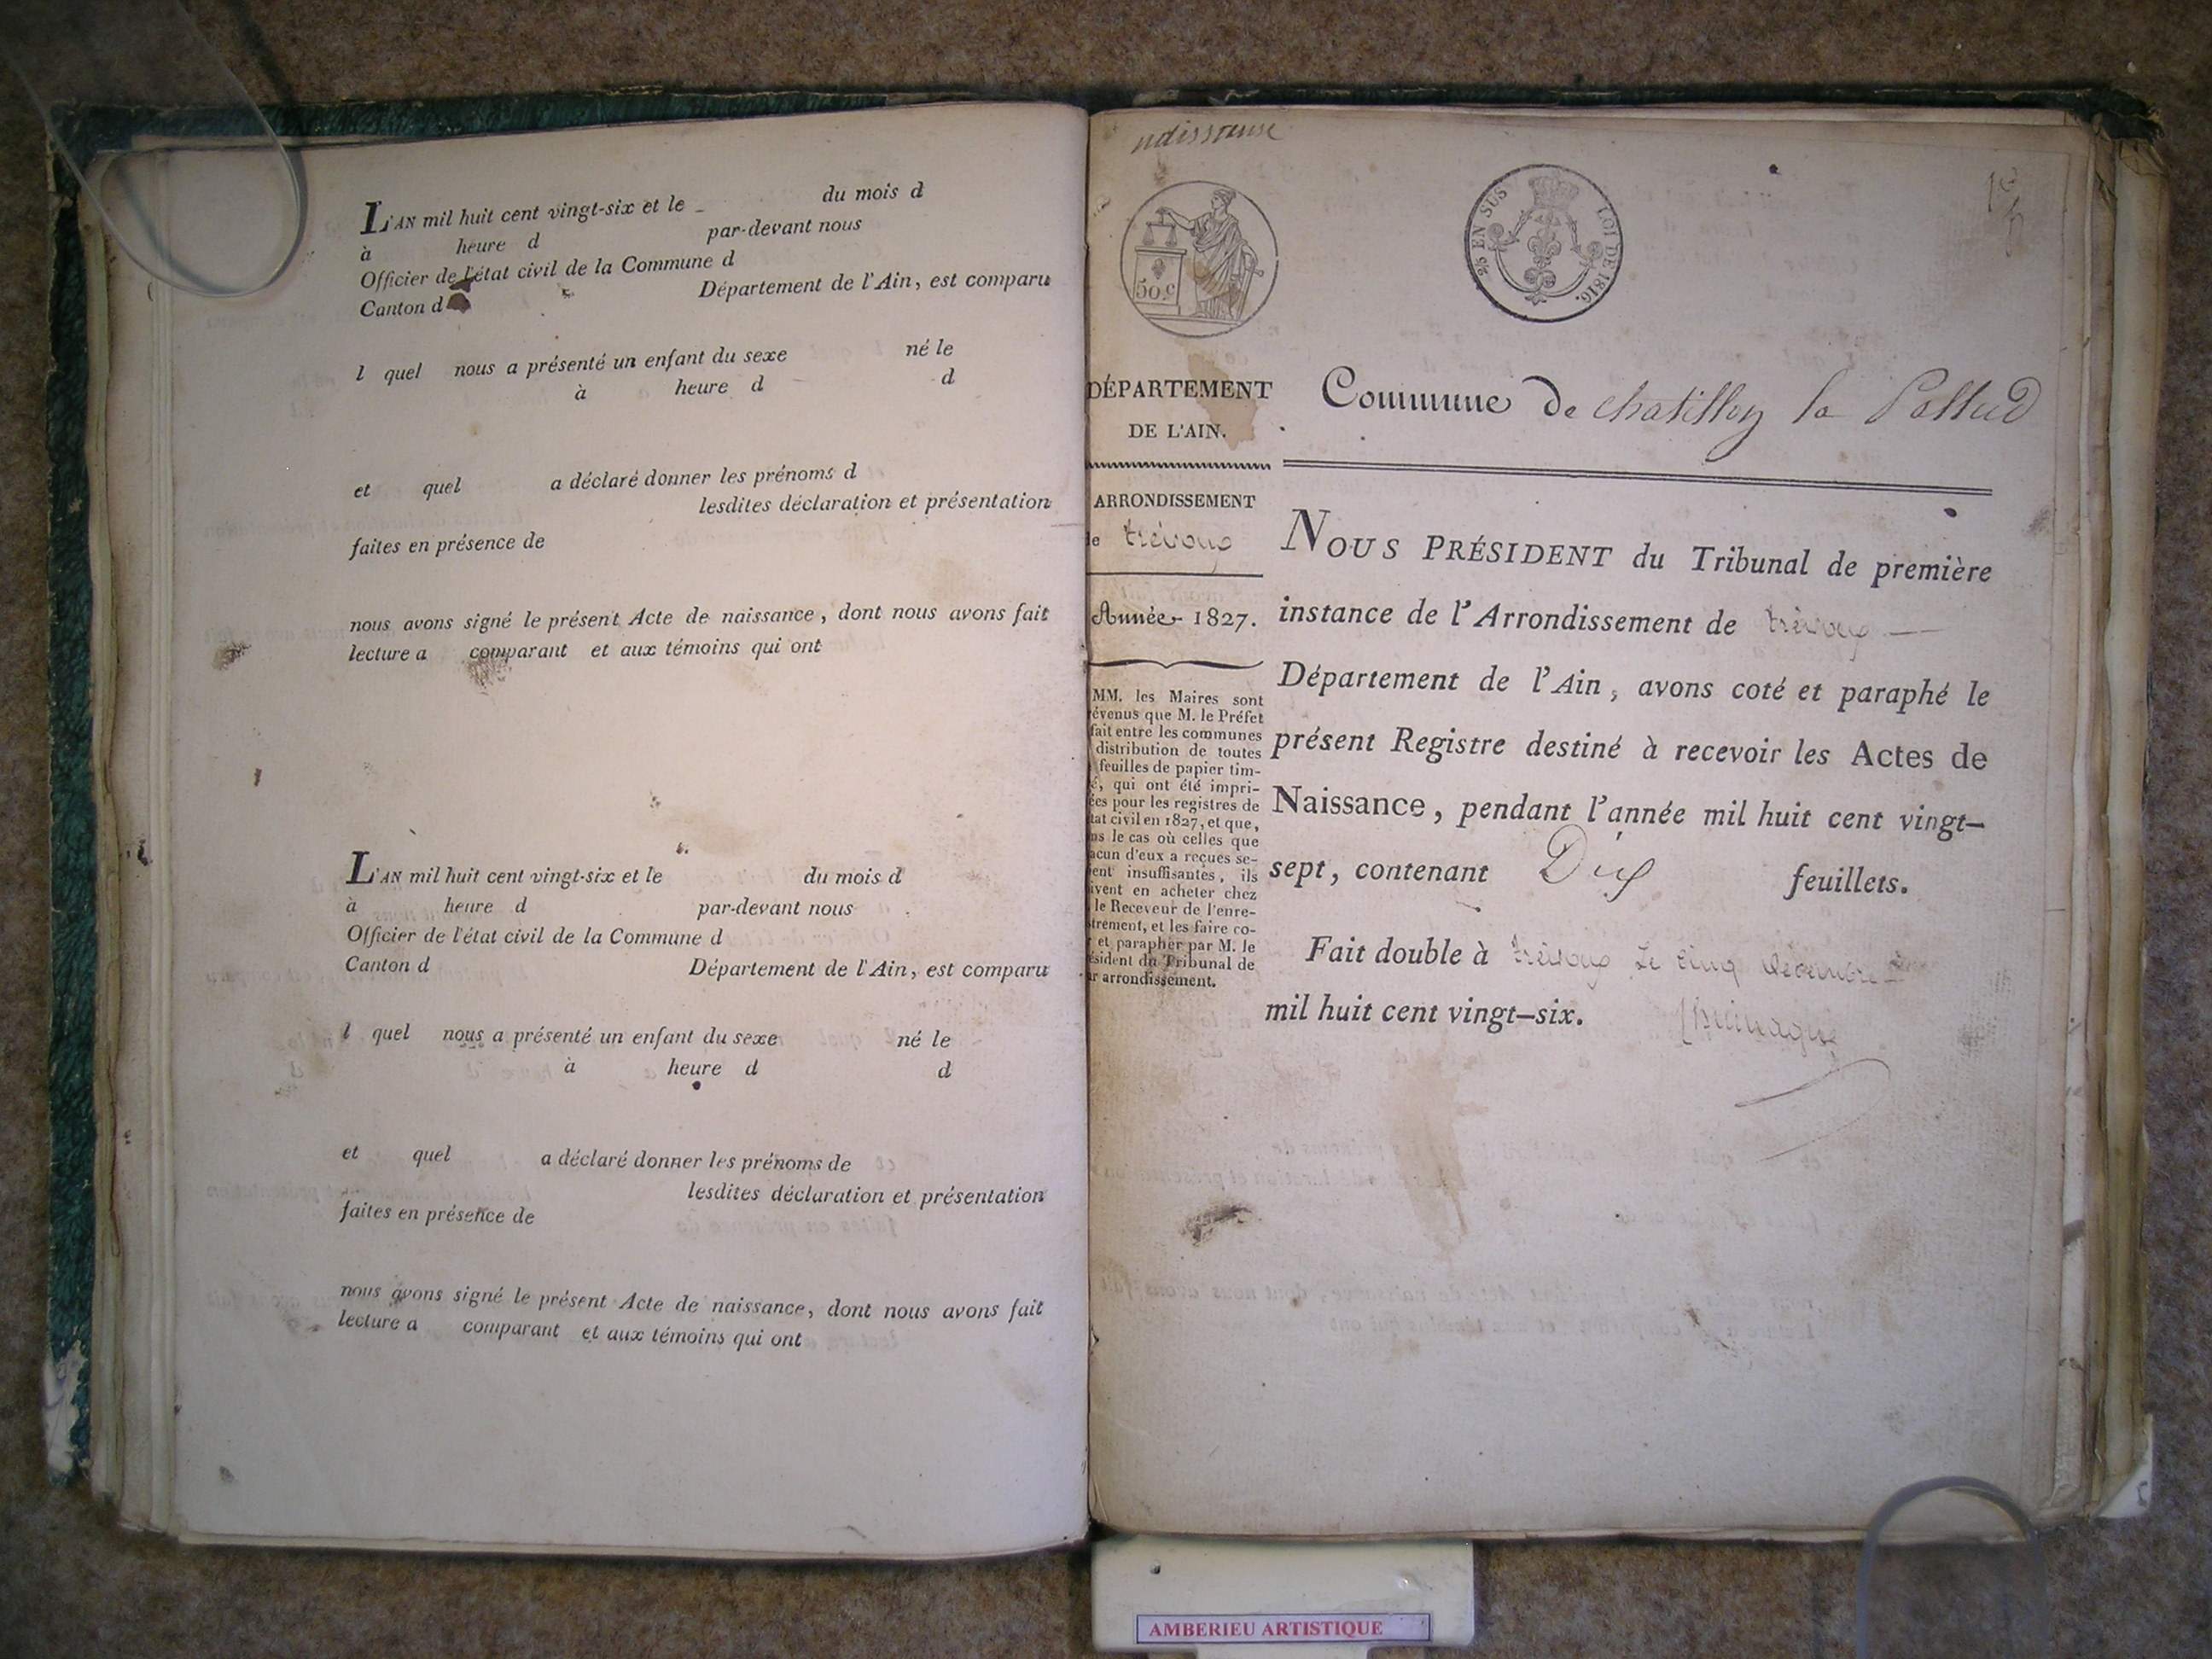 L'AN mil huit cent vingt-six et le du mois d
à heure d par-devant nous
Officier de l'état civil de la Commune d
Canton d Département de l'Ain, est comparu
l quel nous a présenté un enfant du sexe né le
à heure d d
et quel a déclaré donner les prénoms d
lesdites déclaration et présentation
faites en présence de
nous avons signé le présent Acte de naissance, dont nous avons fait
lecture a comparant et aux témoins qui ont
L'AN mil huit cent vingt-six et le du mois d
à heure d par-devant nous
Officier de l'état civil de la Commune d
Canton d Département de l'Ain, est comparu
l quel nous a présenté un enfant du sexe né le
à heure d d
et quel a déclaré donner les prénoms de
lesdites déclaration et présentation
faites en présence de
nous avons signé le présent Acte de naissance, dont nous avons fait
lecture a comparant et aux témoins qui ont
naissance
50 c
25 EN SUS LOI DE 1816.
DÉPARTEMENT
DE L'AIN.
ARRONDISSEMENT
de trévoux
Année 1827.
MM. les Maires sont
évenus que M. le Préfet
fait entre les communes
distribution de toutes
feuilles de papier tim-
é, qui ont été impri-
ées pour les registres de
tat civil en 1827, et que,
ns le cas où celles que
acun d'eux a reçues se-
ent insuffisantes, ils
ivent en acheter chez
le Receveur de l'enre-
trement, et les faire co-
r et parapher par M. le
ésident du Tribunal de
ur arrondissement.
Commune de chatillon la Pallud
NOUS PRÉSIDENT du Tribunal de première
instance de l'Arrondissement de trévoux
Département de l'Ain, avons coté et paraphé le
présent Registre destiné à recevoir les Actes de
Naissance, pendant l'année mil huit cent vingt-
sept, contenant Dix feuillets.
Fait double à trévoux Le cinq décembre
mil huit cent vingt-six.
AMBERIEU ARTISTIQUE